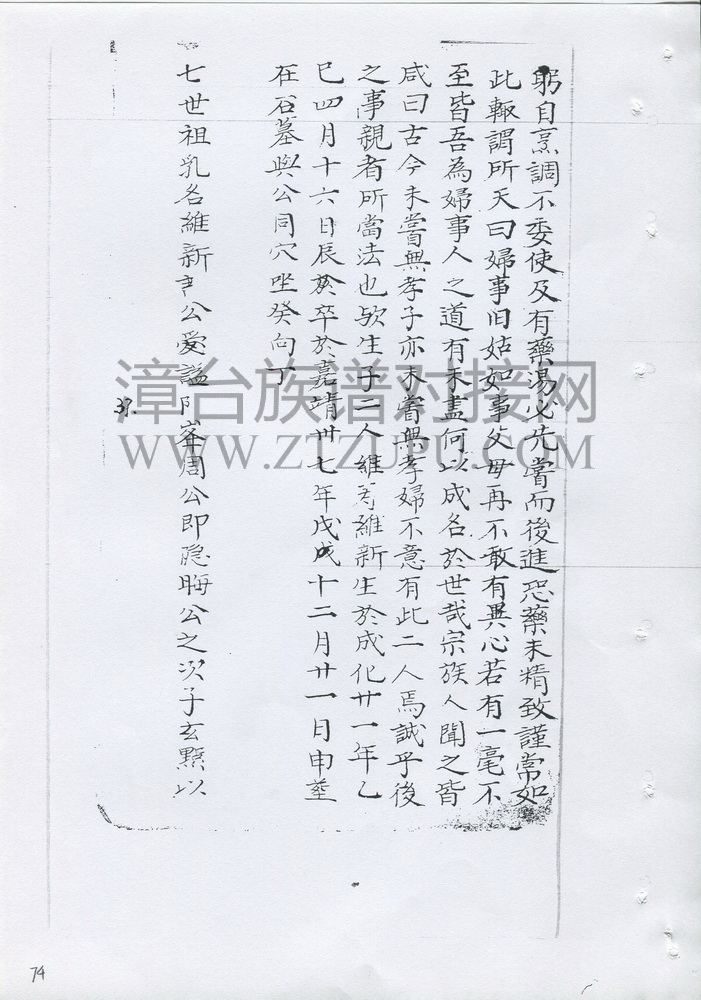 躬自烹調不委使及有藥湯必先嘗而後進恐藥未精致謹常如
此輙謂所天曰婦事旧姑如事父母再不敢有異心若有一毫不
至皆吾為婦事人之道有未盡何以成名於世哉宗族人聞之皆
咸曰古今未嘗無孝子亦未嘗無孝婦不意有此二人焉誠乎後
之事親者所當法也欤生子二人維
維新生於成化廿一年乙
巳四月十六日辰
卒於嘉靖卅七年戊戌十二月廿一日申葬
在石墓與公同穴坐癸向丁
七世祖乳名維新
公愛謚
峯周公即隐晦公之次子玄
以
37.
74
漳台族谱对接网
WWW.ZTZUPU.COM